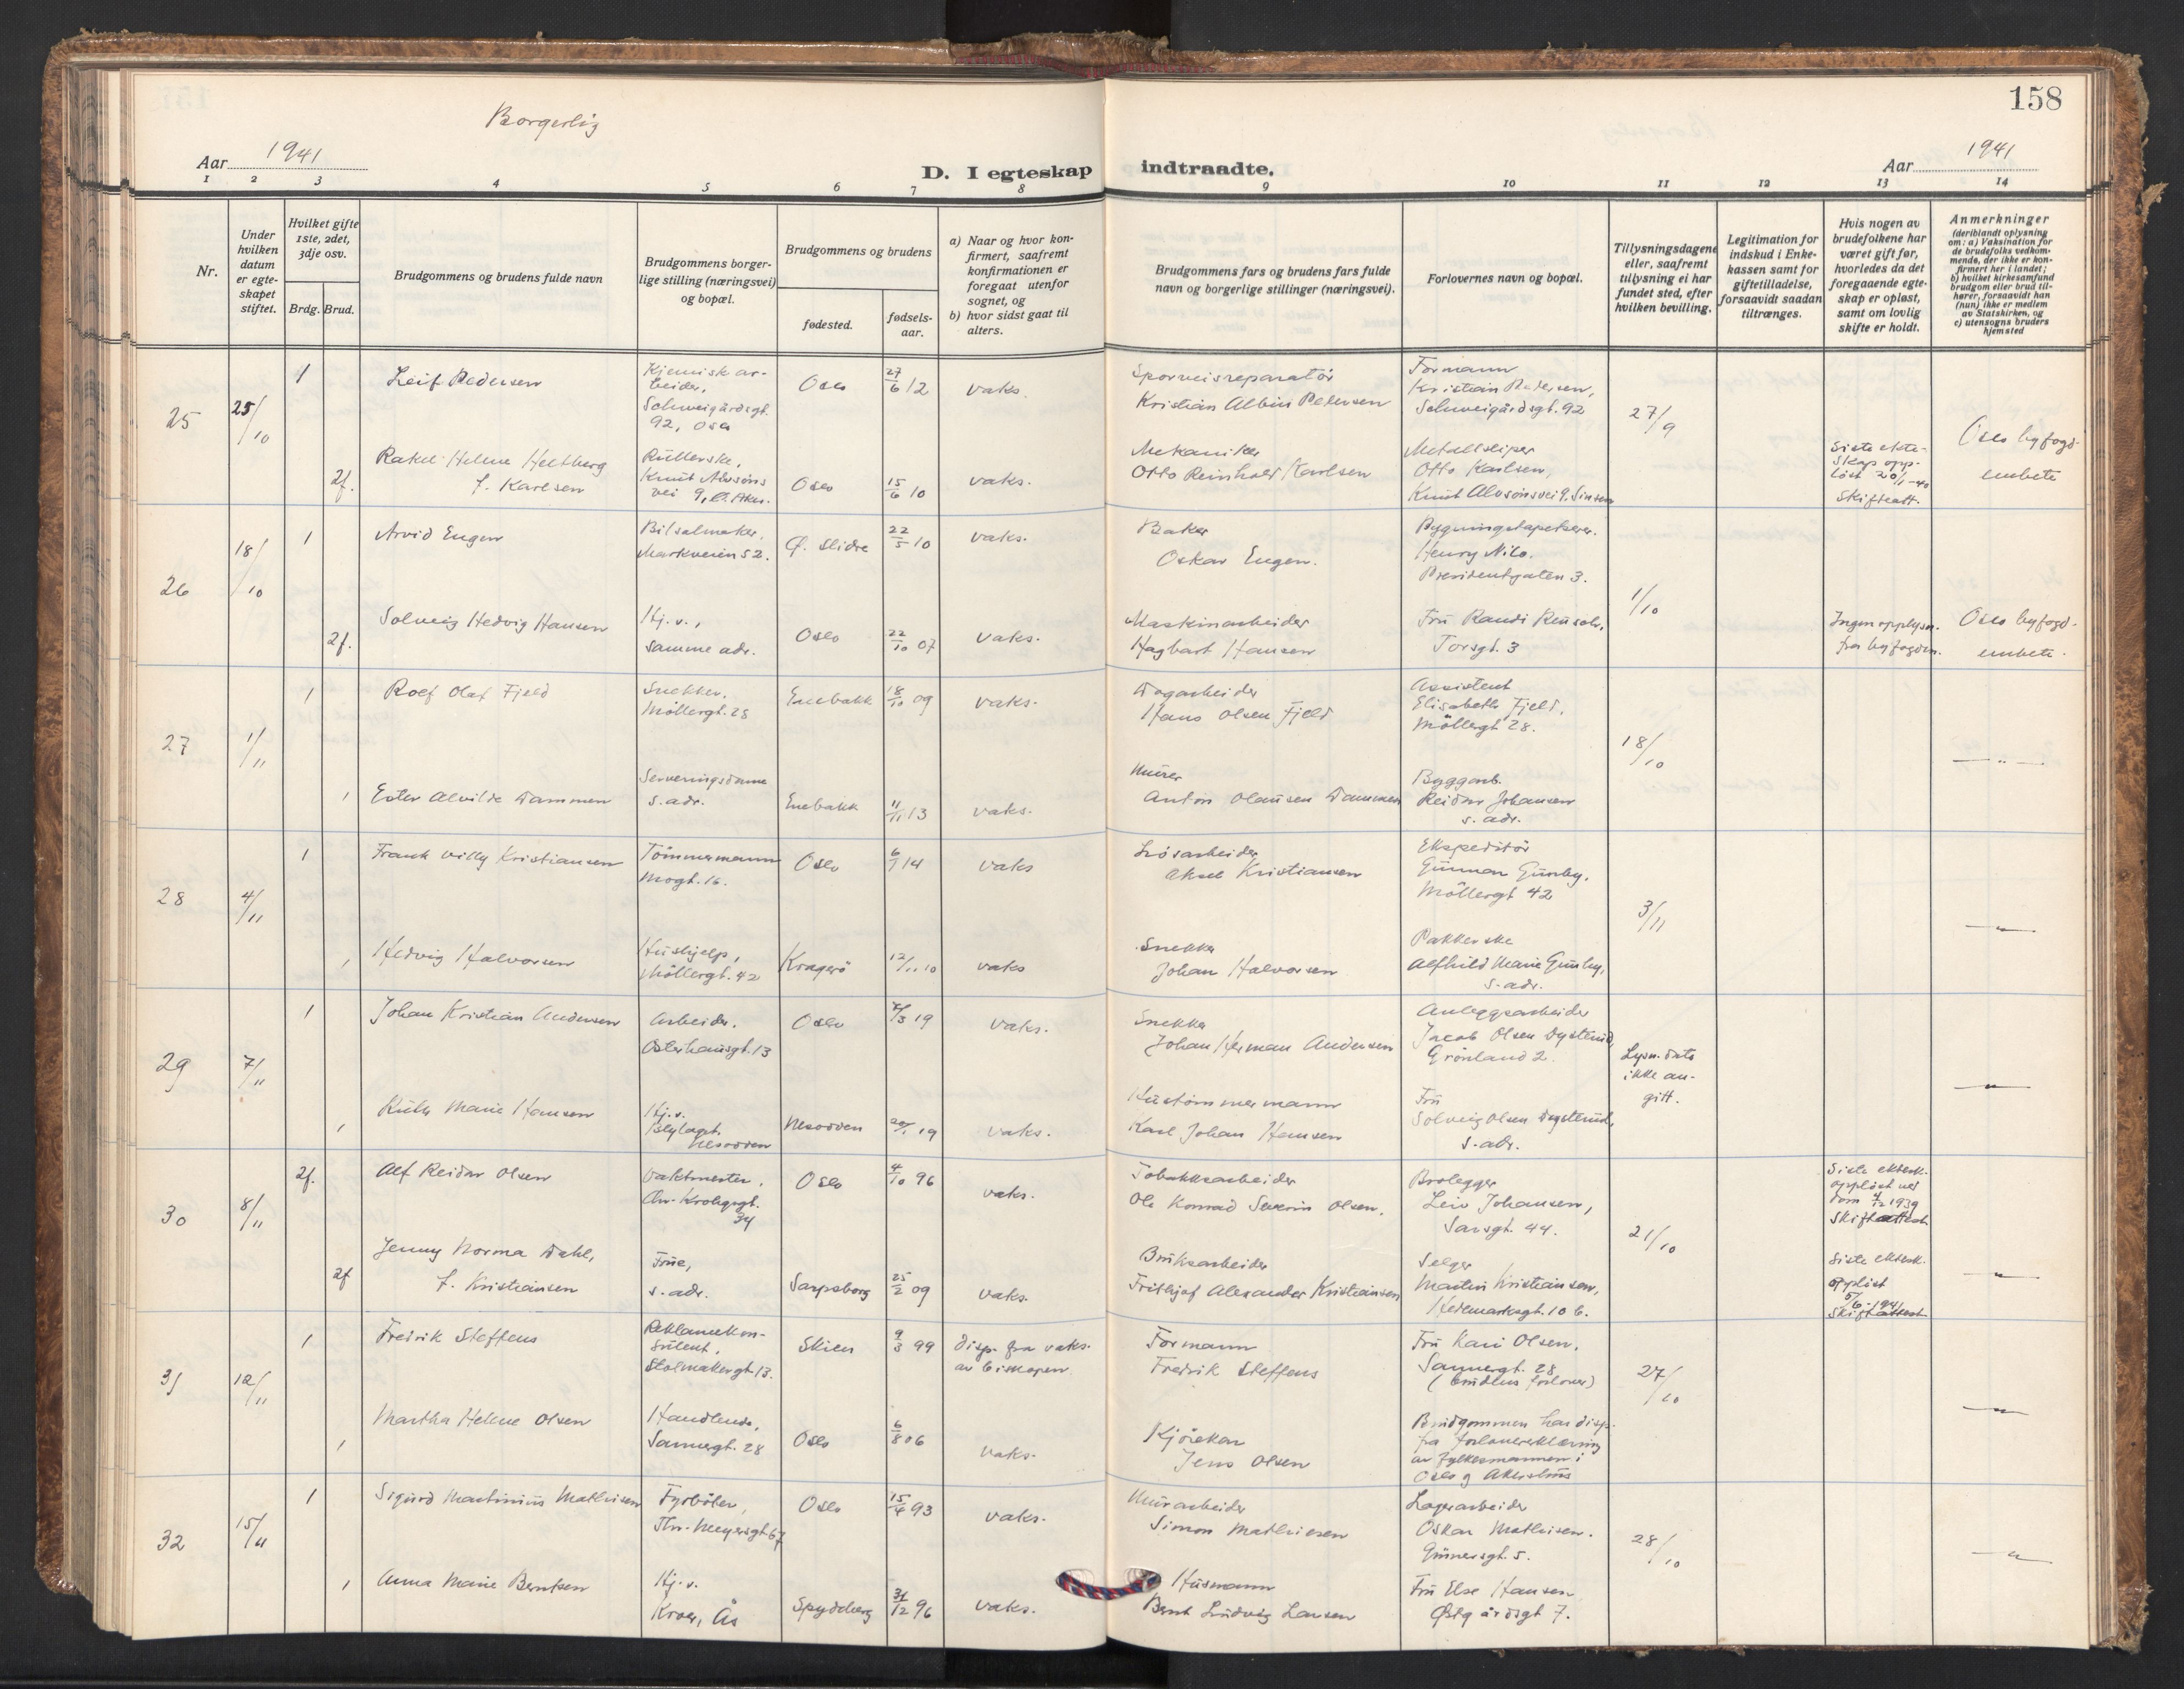 158
Borgerlig
Aar 1941
D. I egteskap indtraadte.
Aar 1941
1 2 3 4 5 6 7 8 9 10 11 12 13 14
Nr.
Under hvilken datum er egte-skapet stiftet.
Hvilket gifte 1ste, 2det, 3dje osv.
Brdg. Brud.
Brudgommens og brudens fulde navn
Brudgommens borger-lige stilling (næringsvei) og bopæl.
Brudgommens og brudens
fødested.
fødsels-aar.
a) Naar og hvor kon-firmert, saafremt konfirmationen er foregaat utenfor sognet, og
b) hvor sidst gaat til alters.
Brudgommens fars og brudens fars fulde navn og borgerlige stillinger (næringsvei).
Forlovernes navn og bopæl.
Tillysningsdagene eller, saafremt tillysning ei har fundet sted, efter hvilken bevilling.
Legitimation for indskud i Enke-kassen samt for giftetilladelse, forsaavidt saadan tiltrænges.
Hvis nogen av brudefolkene har været gift før, hvorledes da det foregaaende egte-skap er opløst, samt om lovlig skifte er holdt.
Anmerkninger (deriblandt oplysning om: a) Vaksination for de brudefolks vedkom-mende, der ikke er kon-firmert her i landet; b) hvilket kirkesamfund brudgom eller brud til-hører, forsaavidt han (hun) ikke er medlem av Statskirken, og c) utensogns bruders hjemsted
25 25/10
1 Leif Pedersen Kjemisk ar-beider, Schweigårdsgt. 92, Oslo Oslo 27/6 12 vaks. Sporveisreparatör Kristian Albin Pedersen Formann Kristian Pedersen, Schweigårdsgt. 92 27/9
2f. Rakel Helene Heltberg f. Karlsen Rullerske, Knut Alvsøns vei 9, Ø. Aker. Oslo 15/6 10 vaks. Mekaniker Otto Reinhold Karlsen Metallsliper Otto Karlsen, Knut Alvsønsvei 9. Sinsen Siste ekte-skap opp-löst 20/1-40 Skifteatt. Oslo byfogd-embete
26 18/10
1 Arvid Engen Bilsalmaker, Markveien 52. Ø. Slidre 22/5 10 vaks. Baker Oskar Engen. Bygningstapetserer. Henry Nilo. Presidentgaten 3. 1/10
2f. Solveig Hedvig Hansen Hj.v., samme adr. Oslo 22/10 07 vaks. Maskinarbeider Hagbart Hansen Fru Randi Reusch, Torsgt. 3 Ingen opplysn. fra byfogden. Oslo byfogd-embete.
27 1/11
1 Rolf Olaf Fjeld Snekker. Möllergt. 28 Enebakk 18/10 09 vaks. Dagarbeider Hans Olsen Fjeld Assistent Elisabeth Fjeld, Möllergt 28. 18/10 — " —
1 Ester Alvilde Dammen Serveringsdame s. adr. Enebakk 11/11 13 vaks. Murer Anton Olausen Dammen Byggarb. Reidar Johansen s. adr.
28 4/11
1 Frank Willy Kristiansen Tömmermann Mogt. 16. Oslo 6/1 14 vaks Løsarbeider Aksel Kristiansen Ekspeditör Gunnar Gunby, Möllergt 42 3/11 — " —
1 Hedvig Halvorsen Hushjelp, Möllergt. 42 Kragerö 12/11 10 vaks Snekker Johan Halvorsen Pakkerske Alfhild Marie Gunby, s. adr.
29 7/11
1 Johan Kristian Andersen Arbeider. Osterhausgt. 13 Oslo 7/3 19 vaks. Snekker Johan Herman Andersen Anleggsarbeider Jacob Olsen Dysterud, Grönland 2. Lysn. dato ikke an-gitt. — " —
1 Ruth Marie Hansen Hj.v. Nesodden Nesodden 19 vaks. Hustömmermann Karl Johan Hansen Fru Solveig Olsen Dysterud, s. adr.
30 8/11
2f. Alf Reidar Olsen Vaktmester, Chr. Krohgsgt. 34 Oslo 4/10 96 vaks. Tobakksarbeider Ole Konrad Severin Olsen. Brolegger Leiv Johansen, Sarsgt. 44. 21/10 Siste ektesk. opplöst ved dom 4/2 1939 Skifteattest
2f Jenny Norma Dahl, f. Kristiansen Frue, s. adr. Sarpsborg 25/2 09 vaks. Bruksarbeider Frithjof Alexander Kristiansen Selger Martin Kristiansen, Hedemarksgt. 10 b. Siste ektesk. opplöst 5/6-1941 Skifteattest — " —
31 12/11
1 Fredrik Steffens Reklamekon-sulent, Stolmakergt 13. Skien 9/3 99 disp. fra vaks. av biskopen Formann Fredrik Steffens Fru Kari Olsen, Sannergt. 28 (brudens forlover) 27/10 — " —
1 Martha Helene Olsen Handlende, Sannergt. 28 Oslo 6/8 06 vaks. Kjörekar Jens Olsen Brudgommen har disp. fra forlovererklæring av fylkesmannen i Oslo og Akershus
32 15/11
1 Sigurd Martinius Mathisen Fyrböter, Thv. Meyersgt 67 Oslo 15/4 93 vaks. Murarbeider Simon Mathiesen Lagerarbeider Oskar Mathisen. Gruners gt. 5. 28/10 — " —
1 Anna Marie Berntsen Hj.v. Kroer, Ås Spydeberg 31/12 96 vaks. Husmann Bernt Ludvig Larsen Fru Else Hansen Østgårdsgt 7.